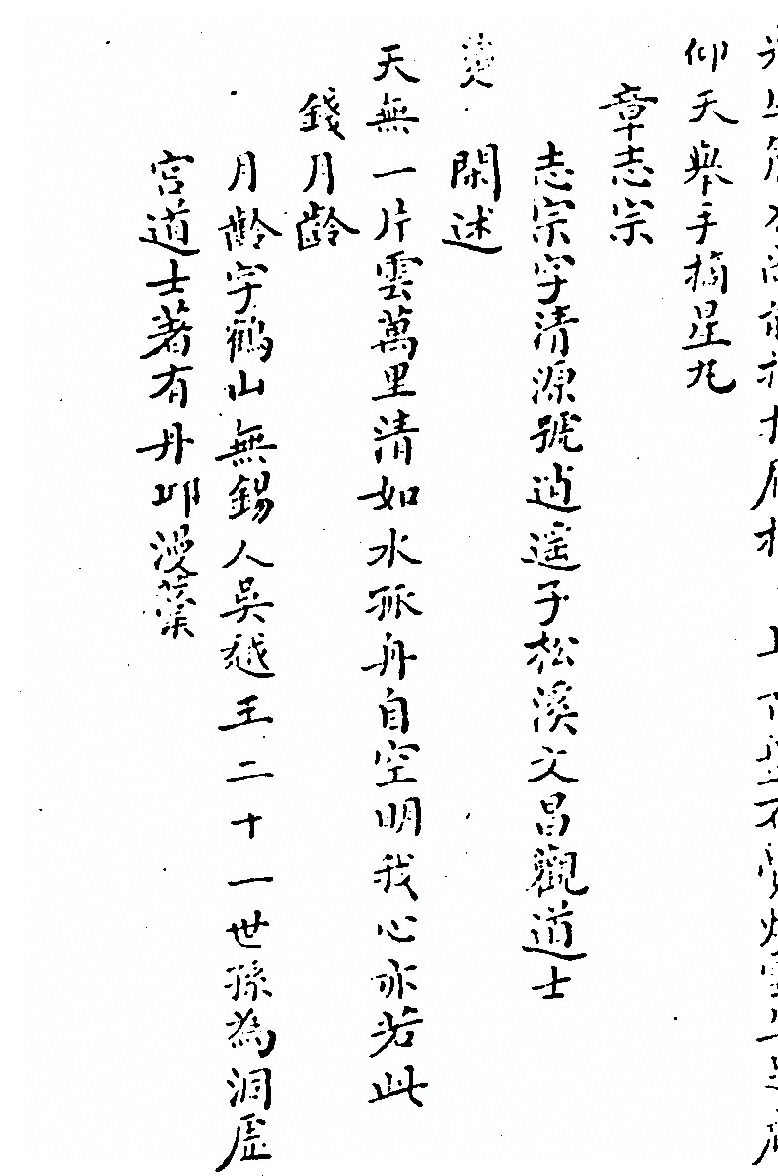 仰天舉手摘星兆
章志宗
志宗字清源號逍遥子松溪文昌觀道士
閑述
天無一片雲萬里清如水孤舟自空明我心亦若此
錢月齡
月齡字鶴山無錫人吳越王二十一世孫為洞虛
宫道士著有丹邱漫藁